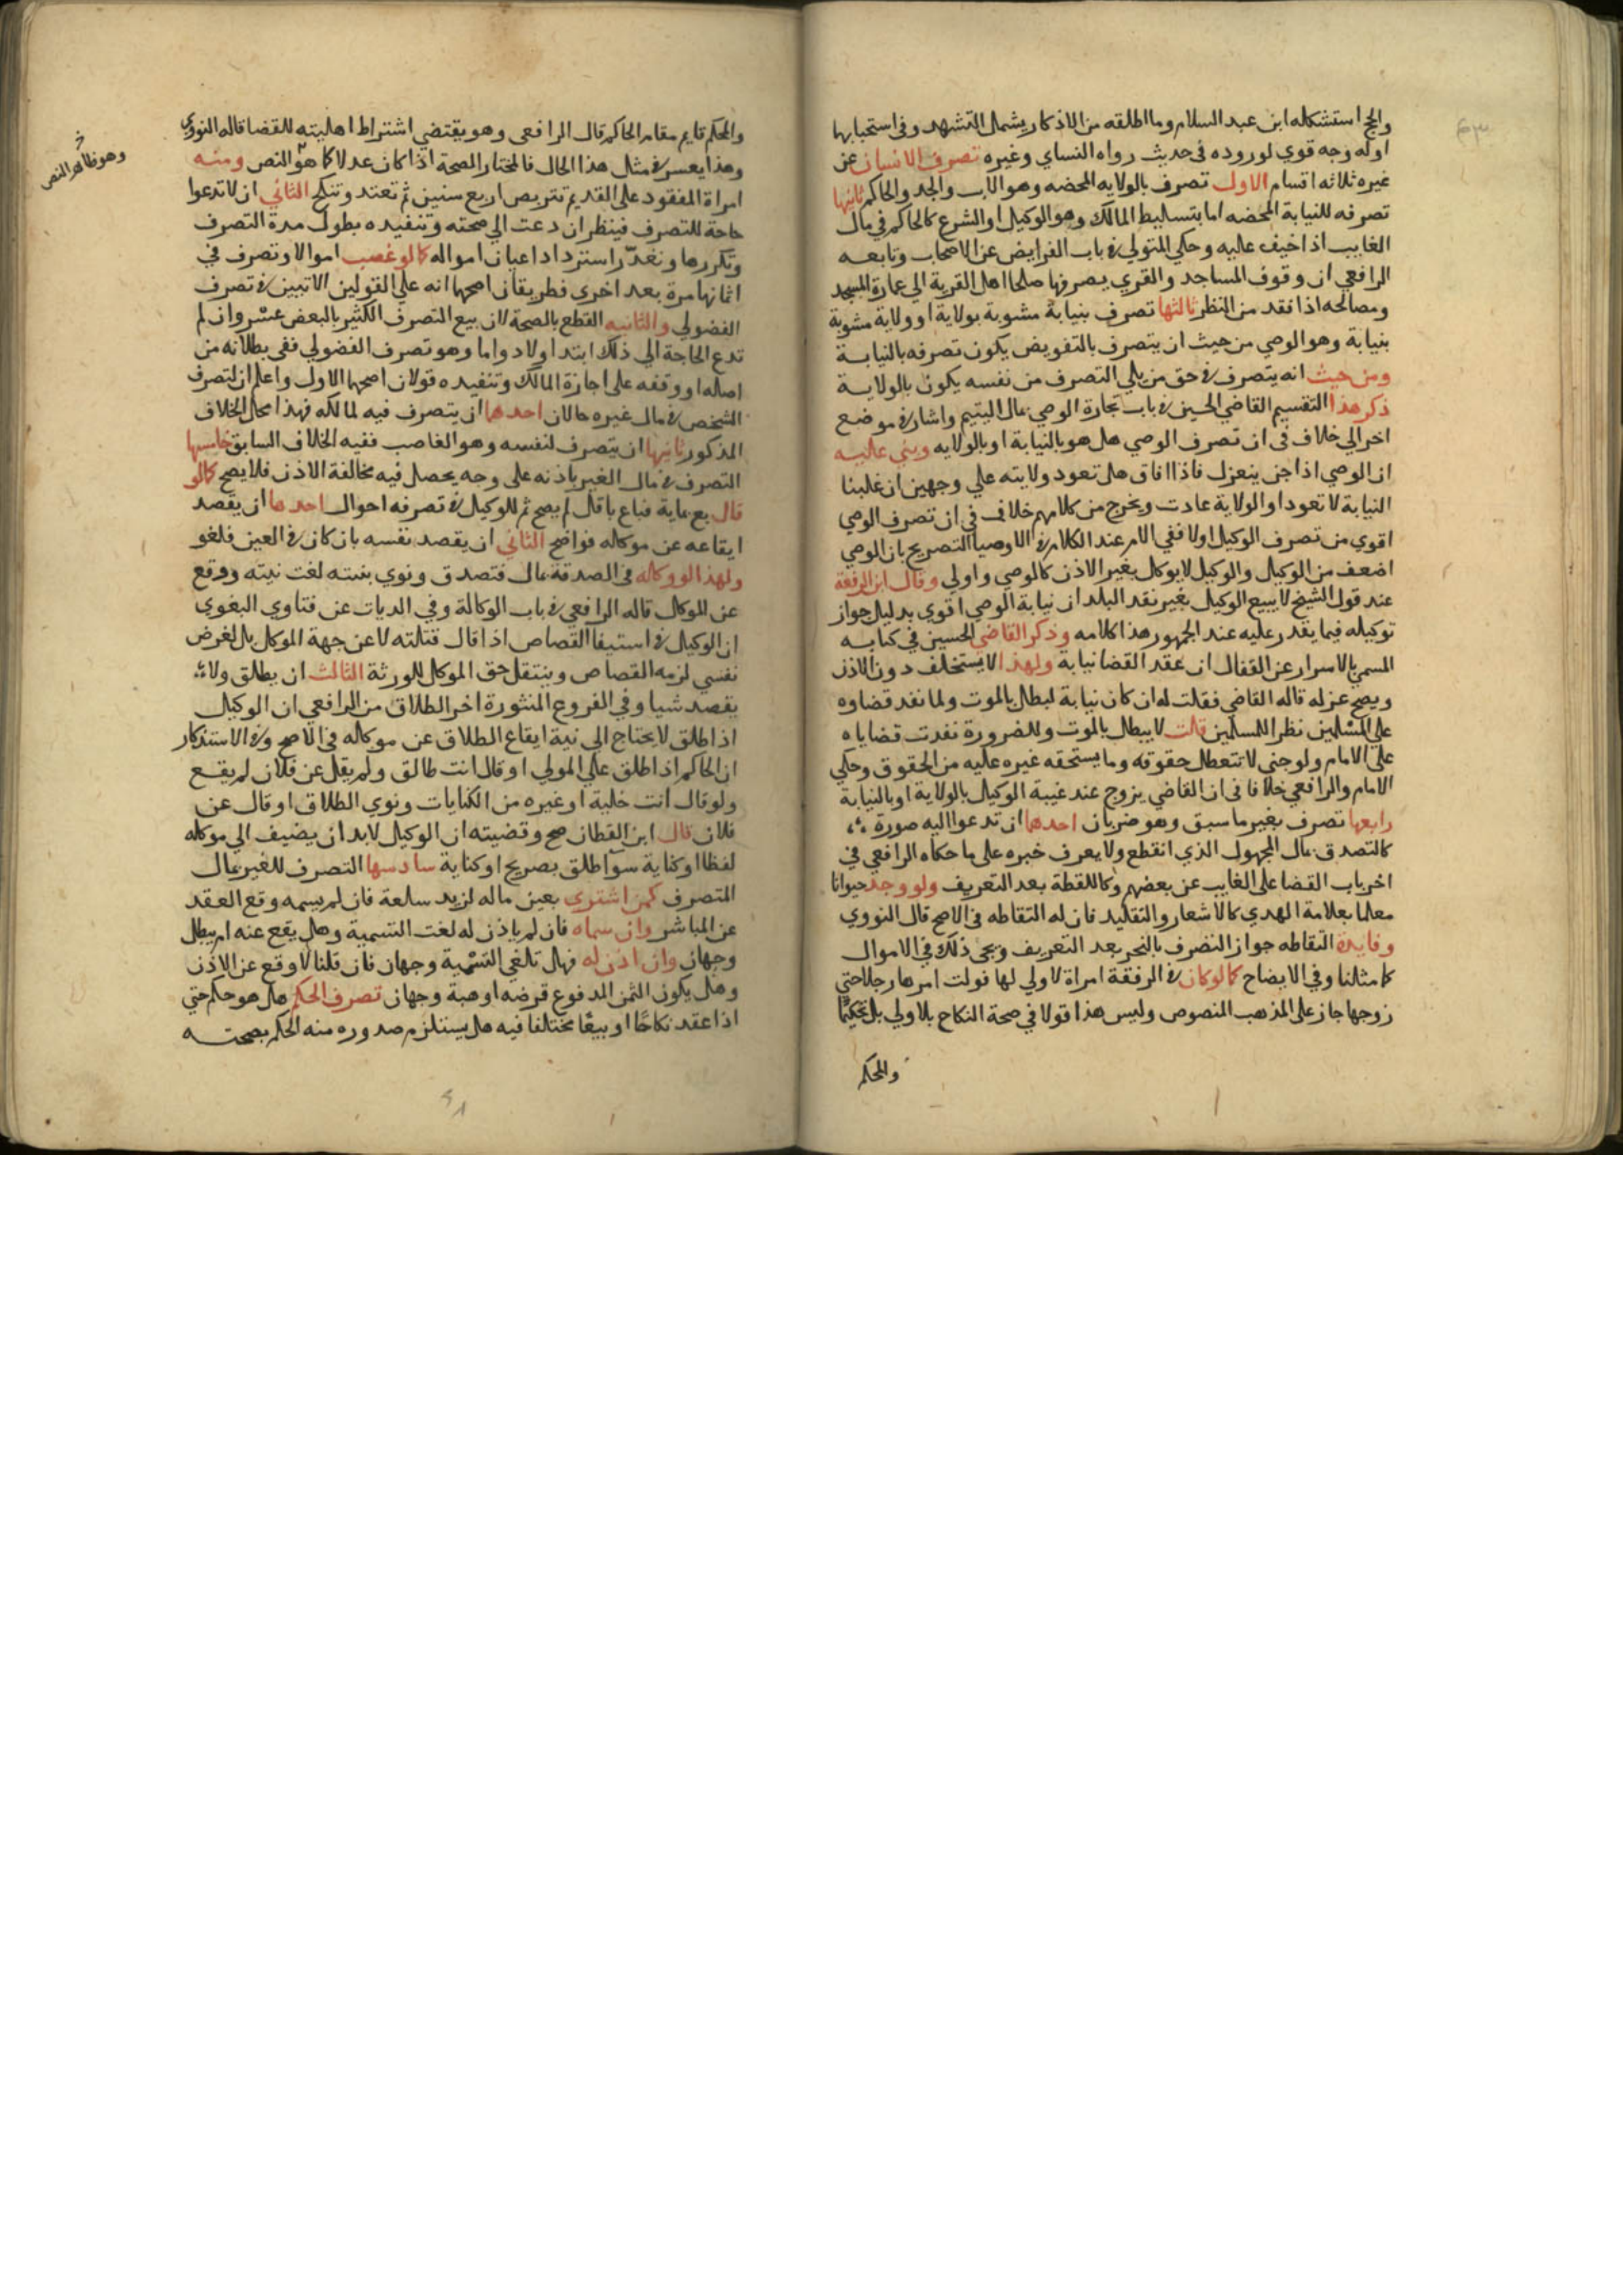 والحج استشكله ابن عبد السلام وما اطلقه من الاذكار يشمل التشهد وفي استحبابها
اوله وجه قوي لوروده في حديث رواه النساي وغيره تصرف الانسان عن
غيره ثلاثه اقسام الاول تصرف بالولايه المحضه وهو الاب والجد والحاكم ثانيها
تصرفه للنيابة المحضه اما بتسليط المالك وهو الوكيل او الشرع كالحاكم في مال
الغايب اذا خيف عليه وحكي المتولي في باب الفرايض عن الاصحاب وتابعه
الرافعي ان وقوف المساجد والقري يصرفها صلحا اهل القرية الي عمارة المسجد
ومصالحه اذا فقد من النظر ثالثها تصرف بنيابة مشوبة بولاية او ولاية مشوبة
بنيابة وهو الوصي من حيث ان يتصرف بالتفويض يكون تصرفه بالنيابة
ومن حيث انه يتصرف في حق من يلي التصرف من نفسه يكون بالولاية
ذكر هذا التقسيم القاضي الحسين في باب تجارة الوصي بمال اليتيم واشار في موضع
اخر الي خلاف في ان تصرف الوصي هل هو بالنيابة او بالولايه وبني عليه
ان الوصي اذا جن ينعزل فاذا افاق هل تعود ولايته علي وجهين ان غلبنا
النيابة لا تعود او الولاية عادت ويخرج من كلامهم خلاف في ان تصرف الوصي
اقوي من تصرف الوكيل اولا ففي الام عند الكلام في الاوصيا التصريح بان الوصي
اضعف من الوكيل والوكيل لا يوكل بغير الاذن كالوصي واولي وقال ابن الرفعة
عند قول الشيخ لا يبيع الوكيل بغير نقد البلد ان نيابة الوصي اقوي بدليل جواز
توكيله فيما يقدر عليه عند الجمهور هذا كلامه وذكر القاضي الحسين في كتابه
المسمي بالاسرار عن القفال ان عقد القضا نيابة ولهذا لا يستخلف دون الاذن
ويصح عزله قاله القاضي فقلت له ان كان نيابة لبطل بالموت ولما نفد قضاوه
علي المسلمين نظرا للمسلمين قالت لا يبطل بالموت وللضرورة نفدت قضاياه
علي الامام ولو جني لا تتعطل حقوقه وما يستحقه غيره عليه من الحقوق وحكي
الامام والرافعي خلافا في ان القاضي يزوج عند غيبة الوكيل بالولاية او بالنيابة
رابعها تصرف بغير ما سبق وهو ضربان احدهما ان تدعوا اليه صورة
كالتصدق بمال المجهول الذي انقطع ولا يعرف خبره علي ما حكاه الرافعي في
اخر باب القضا علي الغايب عن بعضهم وكاللقطة بعد التعريف ولو وجد حيوانا
معلما بعلامة الهدي كالاشعار والتقليد فان له التقاطه في الاصح قال النووي
وفايدة التقاطه جواز التصرف بالنحر بعد التعريف ويجي ذلك في الاموال
كما مثلنا وفي الايضاح كما لو كان في الرفقة امراة لا ولي لها فولت امرها رجلا حتي
زوجها جاز علي المذهب المنصوص وليس هذا قولا في صحة النكاح بلا ولي بل تحكيما
والمحكم
والمحكم قايم مقام الحاكم قال الرافعي وهو يقتضي اشتراط اهليته للقضا قاله النووي
وهذا يعسر في مثل هذا الحال فالمختار الصحة اذا كان عدلا كما هو النص ومنه
امراة المفقود علي القديم تتربص اربع سنين ثم تعتد وتنكح الثاني ان لا تدعوا
حاجة للتصرف فينظر ان دعت الي صحته وتنفيده بطول مدة التصرف
وتكررها وتعدّر استرداد اعيان امواله كما لو غصب اموالا وتصرف في
اثمانها مرة بعد اخري فطريقان اصحهما انه علي القولين الاتيين في تصرف
الفضولي والثانيه القطع بالصحة لان بيع التصرف الكثير بالبعض عسر وان لم
تدع الحاجة الي ذلك ابتدا ولا دواما وهو تصرف الفضولي ففي بطلانه من
اصله او وقفه علي اجازة المالك وتنفيده قولان اصحهما الاول واعلم ان لتصرف
الشخص في مال غيره حالان احدهما ان يتصرف فيه لمالكه فهذا محل الخلاف
المذكور ثانيها ان يتصرف لنفسه وهو الغاصب ففيه الخلاف السابق خامسها
التصرف في مال الغير باذنه علي وجه يحصل فيه مخالفة الاذن فلا يصح كما لو
قال بع بماية فباع باقل لم يصح ثم للوكيل في تصرفه احوال احدها ان يقصد
ايقاعه عن موكله فواضح الثاني ان يقصد نفسه بان كان في العين فلغو
ولهذا لو وكله في الصدقة بمال فتصدق ونوي بنيته لغت نيته ووقع
عن الموكل قاله الرافعي في باب الوكالة وفي الديات عن فتاوي البغوي
ان الوكيل في استيفا القصاص اذا قال قتلته لا عن جهة الموكل بل لغرض
نفسي لزمه القصاص وينتقل حق الموكل للورثة الثالث ان يطلق ولا
يقصد شيا وفي الفروع المنثورة اخر الطلاق من الرافعي ان الوكيل
اذا طلق لا يحتاج الي نية ايقاع الطلاق عن موكله في الاصح وفي الاستذكار
ان الحاكم اذا طلق علي المولي او قال انت طالق ولم يقل عن فلان لم يقع
ولو قال انت خلية او غيره من الكنايات ونوي الطلاق او قال عن
فلان قال ابن القطان صح وقضيته ان الوكيل لا بد ان يضيف الي موكله
لفظا او كناية سوآ طلق بصريح او كناية سادسها التصرف للغير بمال
المتصرف كمن اشتري بعين ماله لزيد سلعة فان لم يسمه وقع العقد
عن المباشر وان سماه فان لم ياذن له لغت التسمية وهل يقع عنه ام يبطل
وجهان وان اذن له فهل تلغي التسمية وجهان فان قلنا لا وقع عن الاذن
وهل يكون الثمن المدفوع قرضه او هبة وجهان تصرف الحكم هل هو حكم حتي
اذا عقد نكاحا او بيعا مختلفا فيه هل يستلزم صدوره منه الحكم بصحته
وهو ظاهر النص